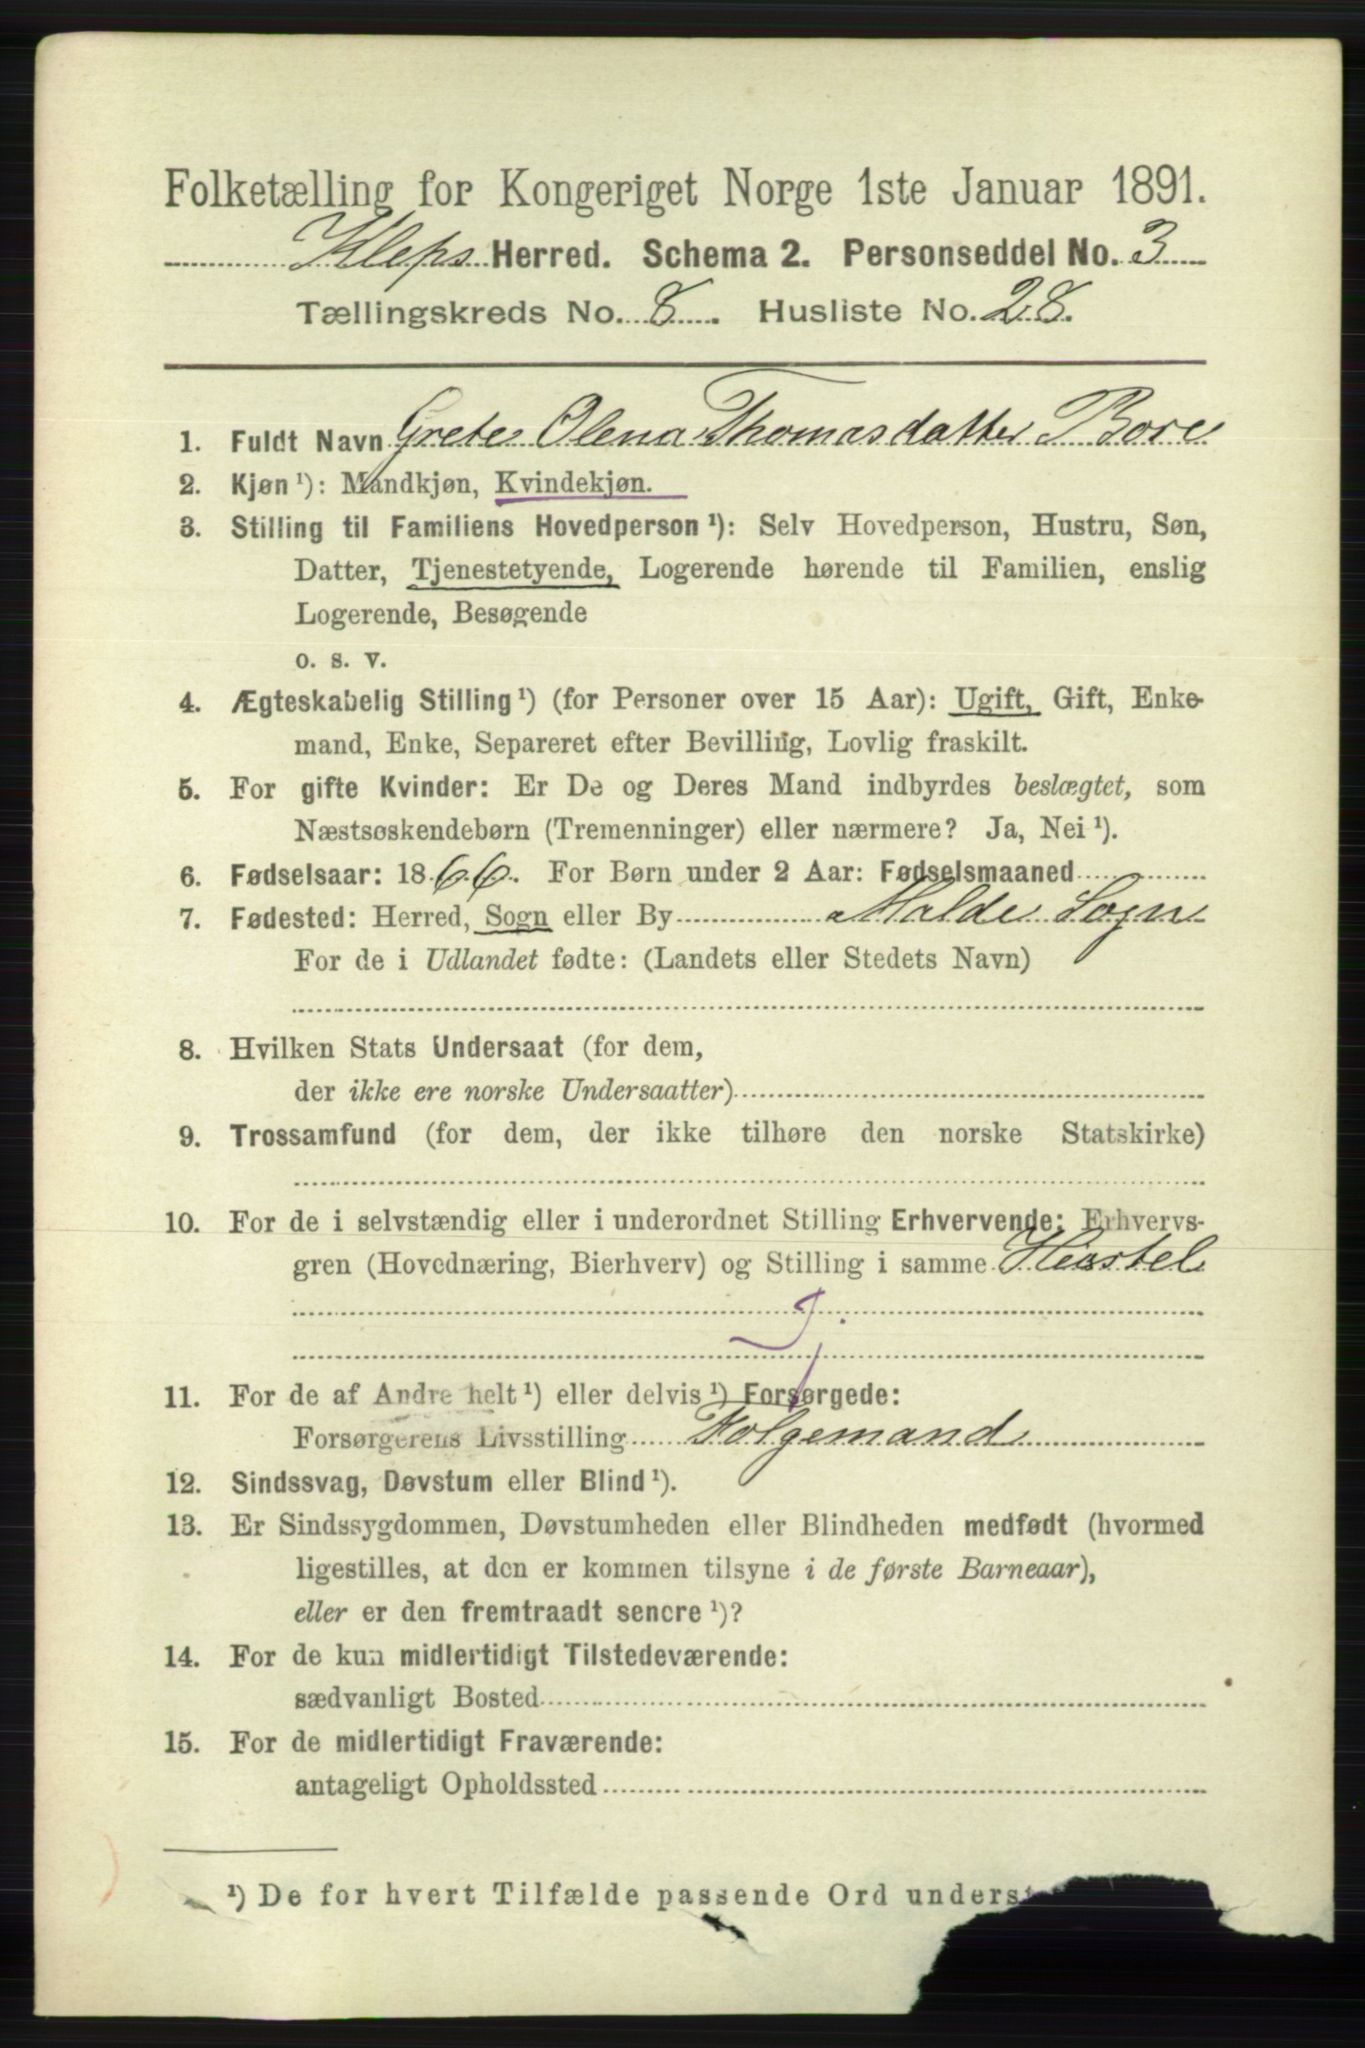 Folketælling for Kongeriget Norge 1ste Januar 1891.
Kleps Herred. Schema 2. Personseddel No. 3
Tællingskreds No. 8. Husliste No. 28.
1. Fuldt Navn Grete Olena Thomasdatter Bore
2. Kjøn ¹): Mandkjøn, Kvindekjøn.
3. Stilling til Familiens Hovedperson ¹): Selv Hovedperson, Hustru, Søn,
Datter, Tjenestetyende, Logerende hørende til Familien, enslig
Logerende, Besøgende
o. s. v.
4. Ægteskabelig Stilling ¹) (for Personer over 15 Aar): Ugift, Gift, Enke-
mand, Enke, Separeret efter Bevilling, Lovlig fraskilt.
5. For gifte Kvinder: Er De og Deres Mand indbyrdes beslægtet, som
Næstsøskendebørn (Tremenninger) eller nærmere? Ja, Nei ¹).
6. Fødselsaar: 1866. For Børn under 2 Aar: Fødselsmaaned
7. Fødested: Herred, Sogn eller By Malde Sogn
For de i Udlandet fødte: (Landets eller Stedets Navn)
8. Hvilken Stats Undersaat (for dem,
der ikke ere norske Undersaatter)
9. Trossamfund (for dem, der ikke tilhøre den norske Statskirke)
10. For de i selvstændig eller i underordnet Stilling Erhvervende: Erhvervs-
gren (Hovednæring, Bierhverv) og Stilling i samme
T.
11. For de af Andre helt ¹) eller delvis ¹) Forsørgede:
Forsørgerens Livsstilling Folgemand
12. Sindssvag, Døvstum eller Blind ¹).
13. Er Sindssygdommen, Døvstumheden eller Blindheden medfødt (hvormed
ligestilles, at den er kommen tilsyne i de første Barneaar),
eller er den fremtraadt senere ¹)?
14. For de kun midlertidigt Tilstedeværende:
sædvanligt Bosted
15. For de midlertidigt Fraværende:
antageligt Opholdssted
¹) De for hvert Tilfælde passende Ord underst